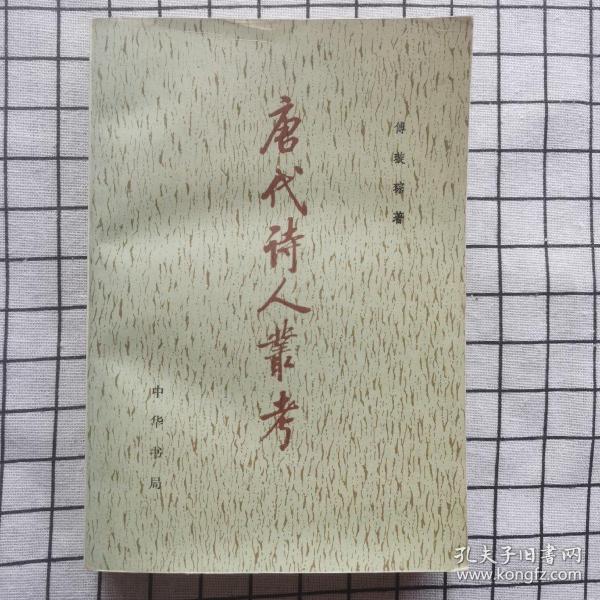 傅璇琮著
唐代诗人叢考
中华书局
孔夫子旧书网
www.kongfz.com